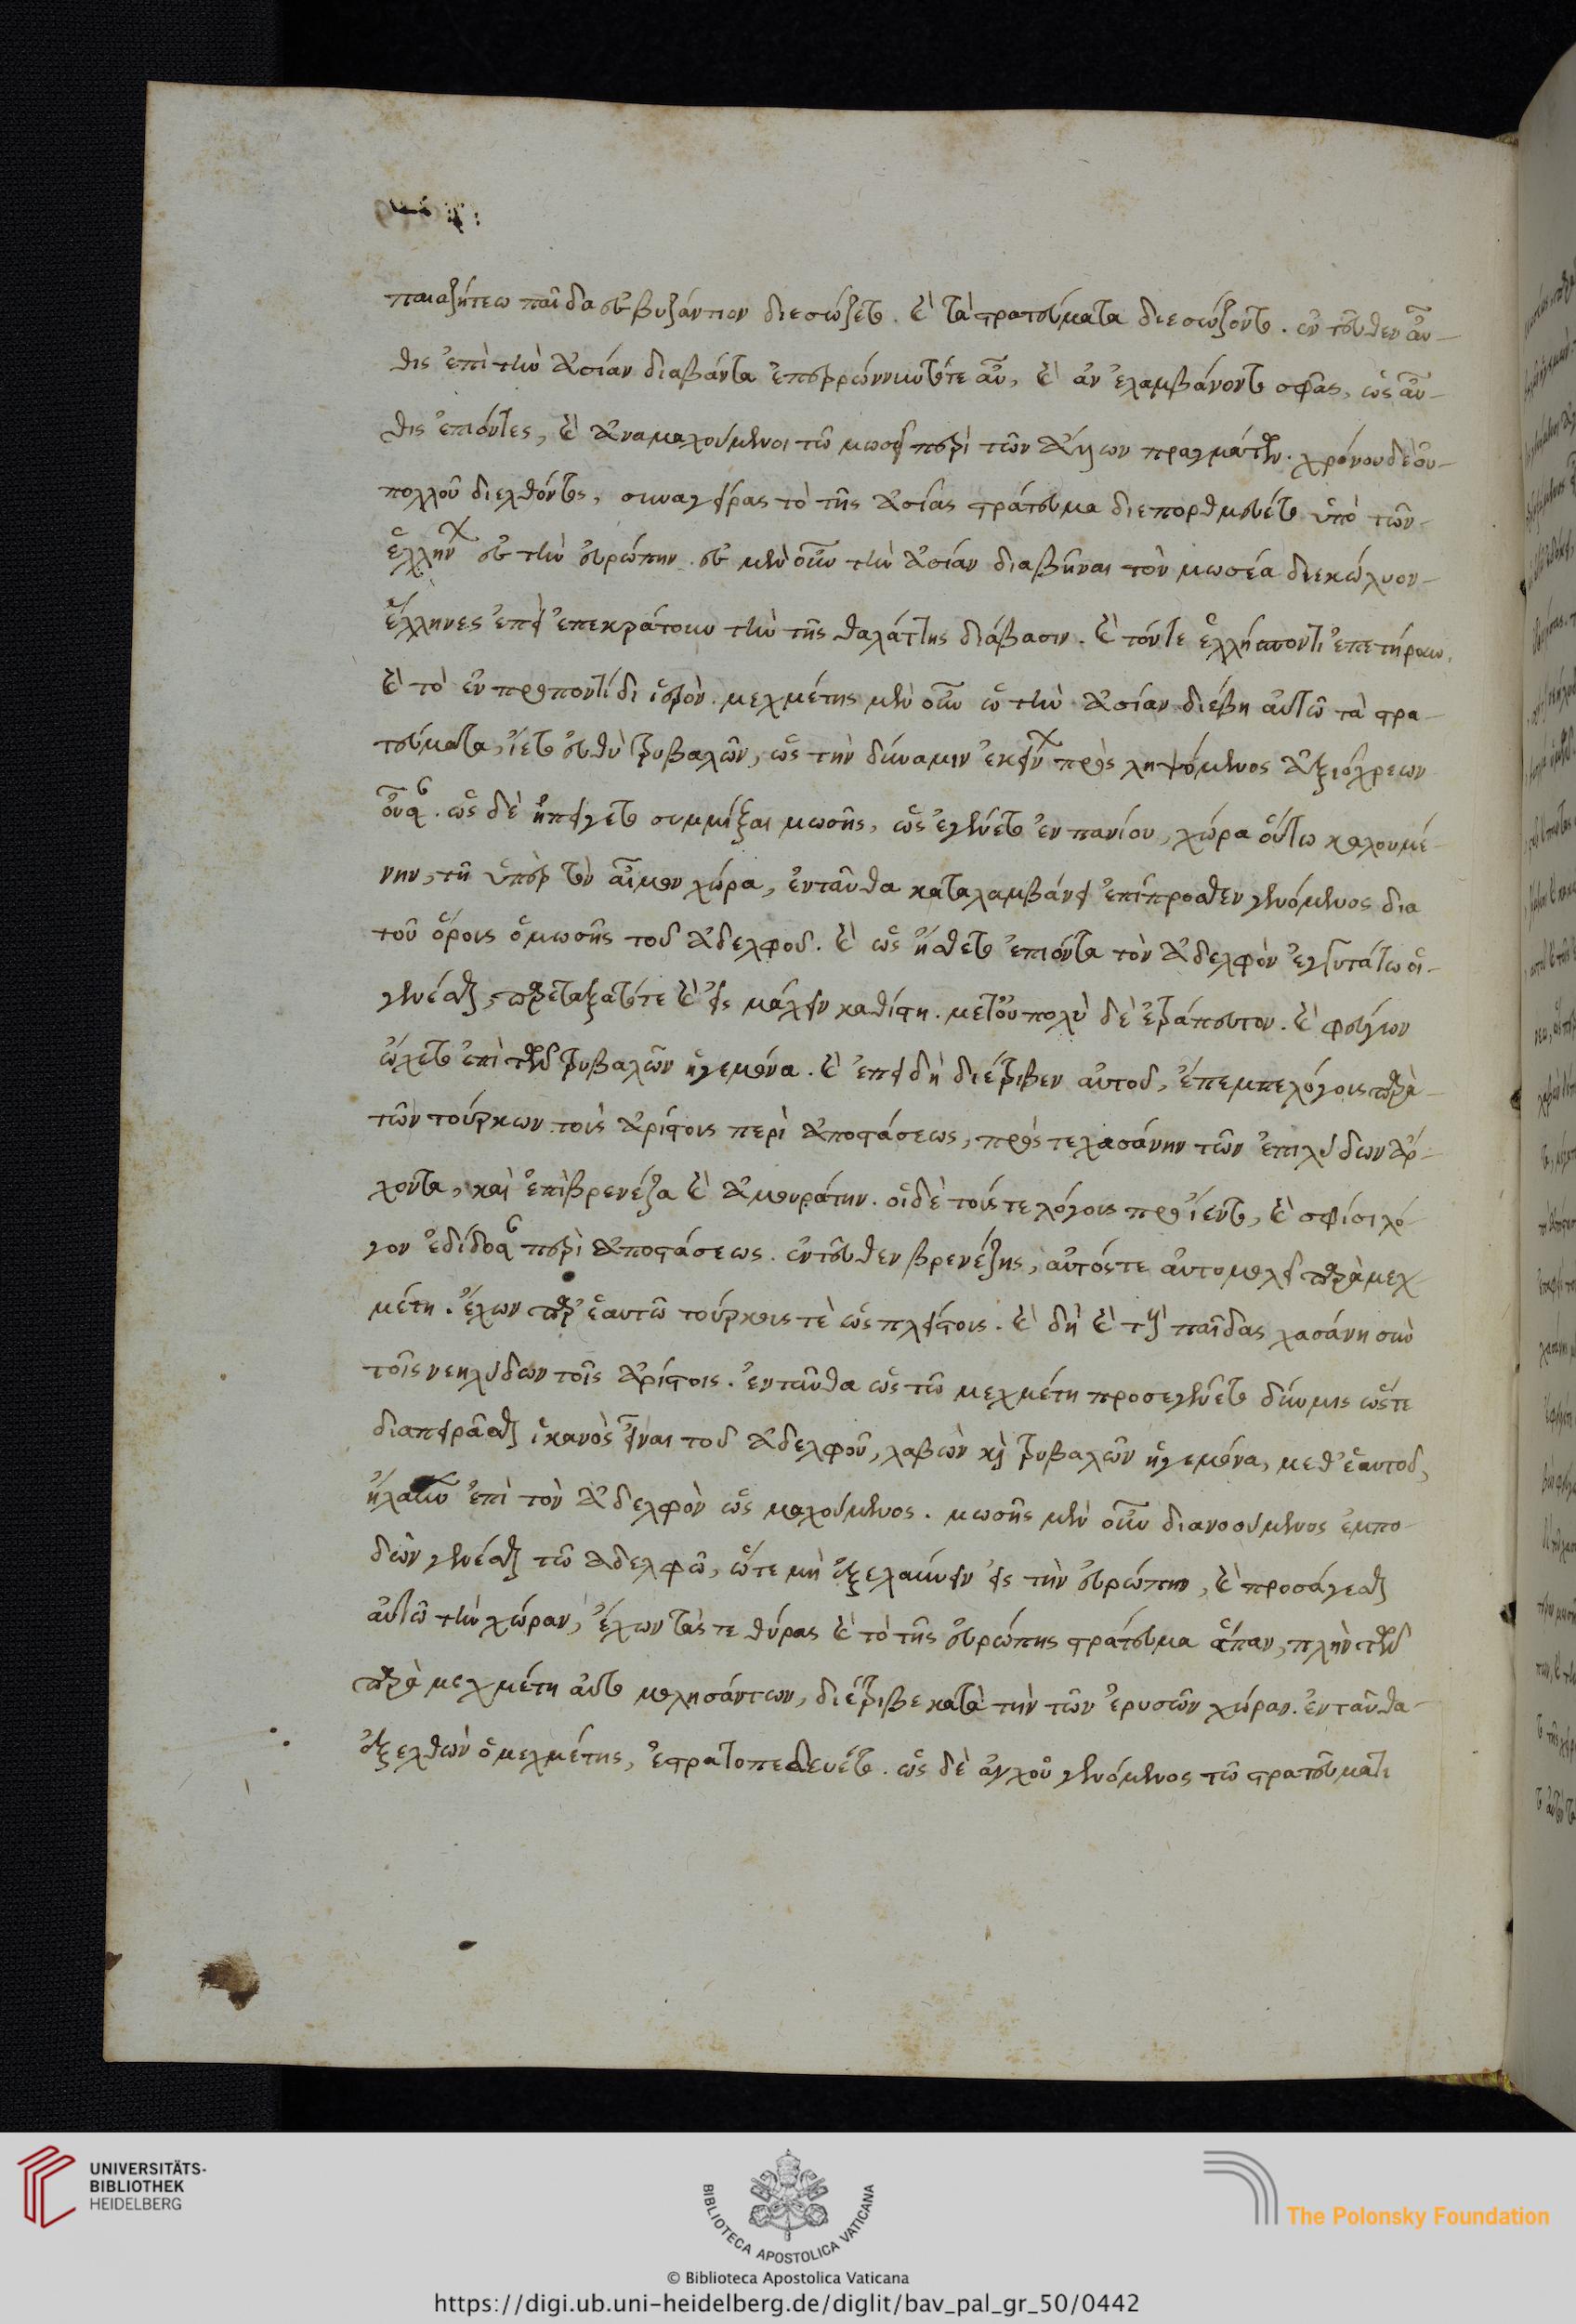 παιαζήτεω παῖδα ἐς βυζάντιον διεσώζετο. καὶ τὰ στρατεύματα διεσώζοντο. ἐντεῦθεν αὖ-
θις ἐπὶ τὴν ἀσίαν διαβάντα ἐπερρώννυτό τε αὖ, καὶ ἀνελαμβάνοντο σφᾶς, ὡς αὖ-
θις ἐπιόντες, καὶ ἀναμαχούμενοι τῷ μωσεῖ περὶ τῶν ὅλων πραγμάτων. χρόνου δὲ οὐ
πολλοῦ διελθόντος, συναγείρας τὸ τῆς ἀσίας στράτευμα διεπορθμεύετο ὑπὸ τῶν
ἑλλήνων ἐς τὴν εὐρώπην. ἐς μὲν οὖν τὴν ἀσίαν διαβῆναι τὸν μωσέα διεκώλυον
ἕλληνες ἐπεὶ ἐπεκράτουν τὴν τῆς θαλάττης διάβασιν. καὶ τόν τε ἑλλήσποντον ἐπετήρουν,
καὶ τὸ ἐν προποντίδι ἱερὸν. μεχμέτης μὲν οὖν ὡς τὴν ἀσίαν διέβη αὐτῷ τὰ στρα-
τεύματα, ἵετο εὐθὺ τριβαλῶν, ὡς τὴν δύναμιν ἐκείνων προσληψόμενος ἀξιόχρεων
οὖσαν. ὡς δὲ ἠπείγετο συμμίξαι μωσῆς, ὡς ἐγένετο ἐν πανίου, χώρα οὕτω καλουμέ-
νην, τῇ ὑπὲρ τὸν αἷμον χώρα, ἐνταῦθα καταλαμβάνει ἐπίπροσθεν γενόμενος δια
τοῦ ὄρους ὁ μωσῆς τοῦ ἀδελφοῦ. καὶ ὡς ᾔσθετο ἐπιόντα τὸν ἀδελφὸν ἐγγυτάτω οἱ
γενέσθαι, παρετάξατό τε καὶ εἰς μάχην καθίστη. μετ' οὐ πολὺ δὲ ἐτράπετο. καὶ φεύγων
ᾤχετο ἐπὶ τὸν τριβαλῶν ἡγεμόνα. καὶ ἐπειδὴ διέτριβεν αὐτοῦ, ἔπεμπε λόγους παρὰ
τῶν τούρκων τοὺς ἀρίστους περὶ ἀποστάσεως, πρός τε χασάνην τῶν ἐπιλύδων ἄρ-
χοντα, καὶ ἐπὶ βρενέζα καὶ ἀμουράτην. οἱ δὲ τούς τε λόγους προσίεντο, καὶ σφίσι λό-
γον ἐδίδοσαν περὶ ἀποστάσεως. ἐντεῦθεν βρενέζης, αὐτός τε αὐτομολεῖ παρὰ μεχ-
μέτη. ἔχων παρ' ἑαυτῷ τούρκους τὲ ὡς πλείστους. καὶ δὴ καὶ τοὺς παῖδας χασάνη σὺν
τοῖς νεηλύδων τοῖς ἀρίστοις. ἐνταῦθα ὡς τῷ μεχμέτη προσεγένετο δύναμις ὥστε
διαπειρᾶσθαι ἱκανὸς εἶναι τοῦ ἀδελφοῦ, λαβὼν καὶ τριβαλῶν ἡγεμόνα, μεθ' ἑαυτοῦ,
ἤλαυνεν ἐπὶ τὸν ἀδελφὸν ὡς μαχούμενος. μωσῆς μὲν οὖν διανοούμενος ἐμπο-
δὼν γενέσθαι τῷ ἀδελφῷ, ὥστε μὴ ἐξελαύνειν εἰς τὴν εὐρώπην, καὶ προσάγεσθαι
αὐτῷ τὴν χώραν, ἔχων τάς τε θύρας καὶ τὸ τῆς εὐρώπης στράτευμα ἅπαν, πλὴν τῶν
παρὰ μεχμέτη αὐτομολησάντων, διέτριβε κατὰ τὴν τῶν ἐρυσῶν χώραν. ἐνταῦθα
ἐξελθὼν ὁ μεχμέτης, ἐστρατοπεδεύετο. ὡς δὲ ἀγχοῦ γενόμενος τῷ στρατεύματι
UNIVERSITÄTS-
BIBLIOTHEK
HEIDELBERG
BIBLIOTECA APOSTOLICA VATICANA
The Polonsky Foundation
© Biblioteca Apostolica Vaticana
https://digi.ub.uni-heidelberg.de/diglit/bav_pal_gr_50/0442